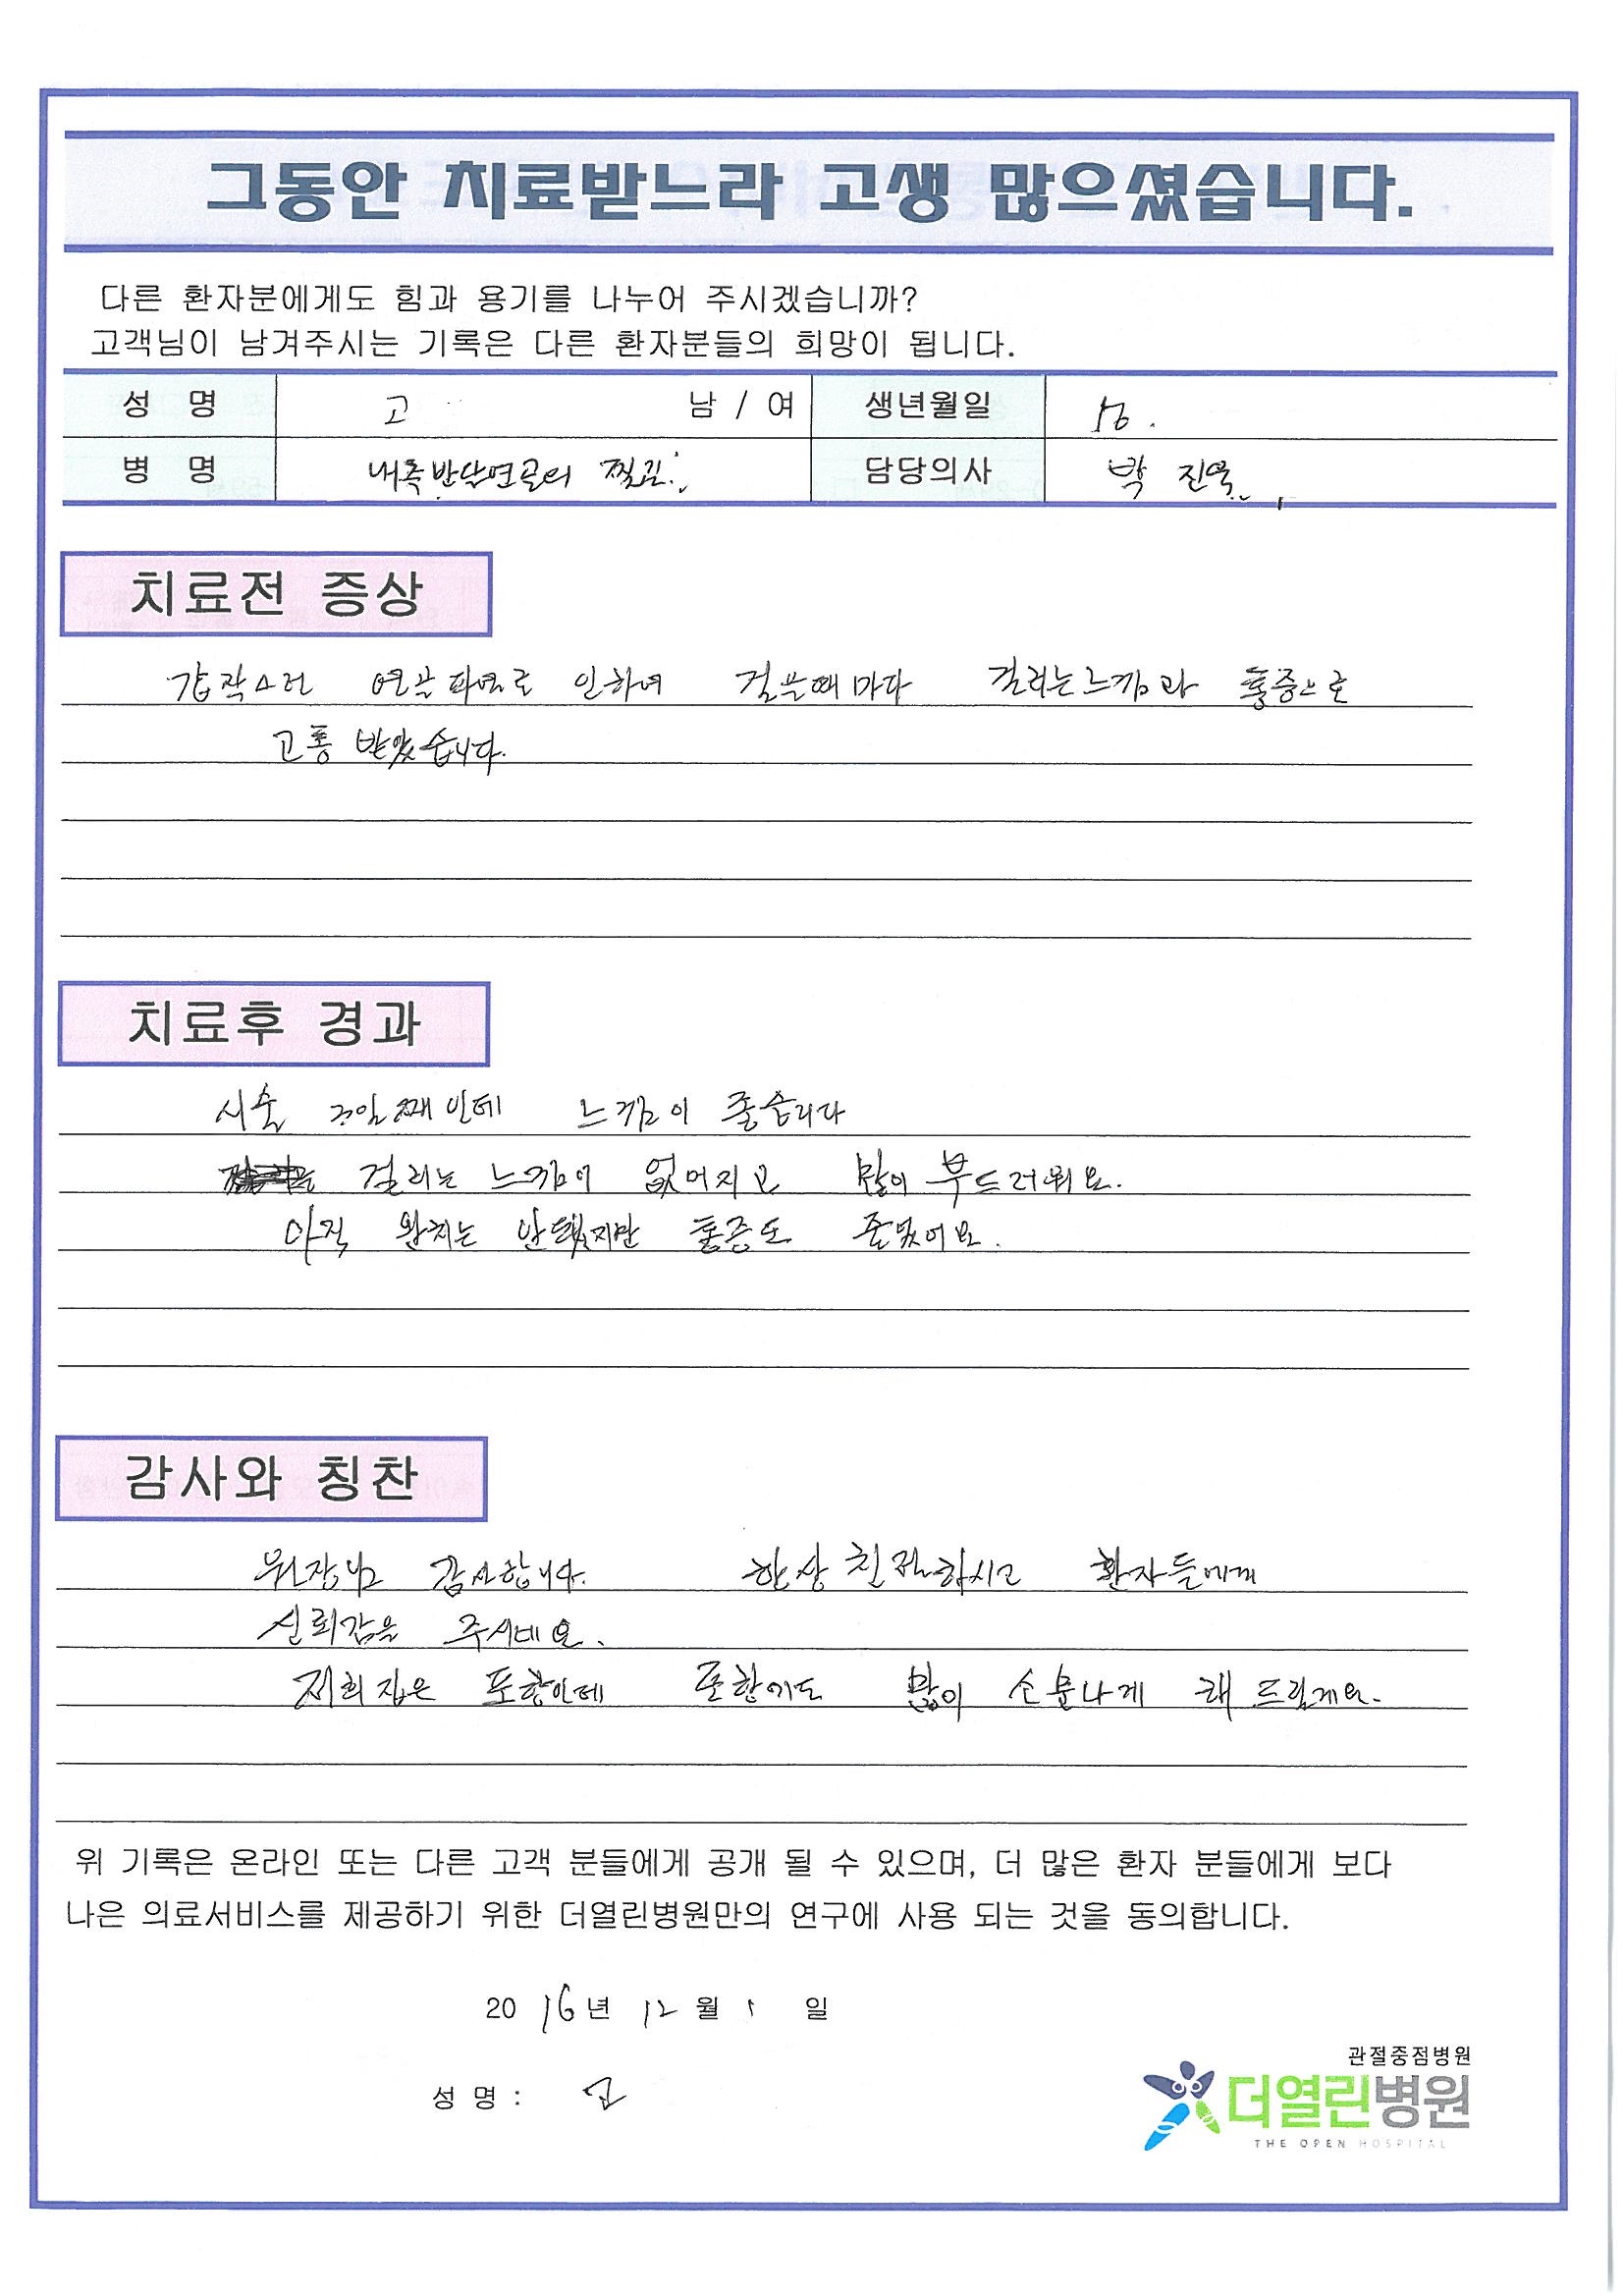 그동안 치료받느라 고생 많으셨습니다.
다른 환자분에게도 힘과 용기를 나누어 주시겠습니까?
고객님이 남겨주시는 기록은 다른 환자분들의 희망이 됩니다.
성 명 고 남 / 여 생년월일
병 명 내측반달연골의 찢김. 담당의사 박 진욱
치료전 증상
갑작스런 연골파열로 인하여 걸을때마다 걸리는느낌과 통증으로
고통 받았습니다.
치료후 경과
시술 3일째인데 느낌이 좋습니다
걸리는 느낌이 없어지고 많이 부드러워요.
아직 완치는 안됐지만 통증도 줄었어요.
감사와 칭찬
원장님 감사합니다. 항상 친절하시고 환자들에게
신뢰감을 주시네요.
저희 집은 포항인데 포항에도 많이 소문나게 해 드릴게요.
위 기록은 온라인 또는 다른 고객 분들에게 공개 될 수 있으며, 더 많은 환자 분들에게 보다
나은 의료서비스를 제공하기 위한 더열린병원만의 연구에 사용 되는 것을 동의합니다.
2016년 12월 1 일
성 명 : 고
관절중점병원
더열린병원
THE OPEN HOSPITAL